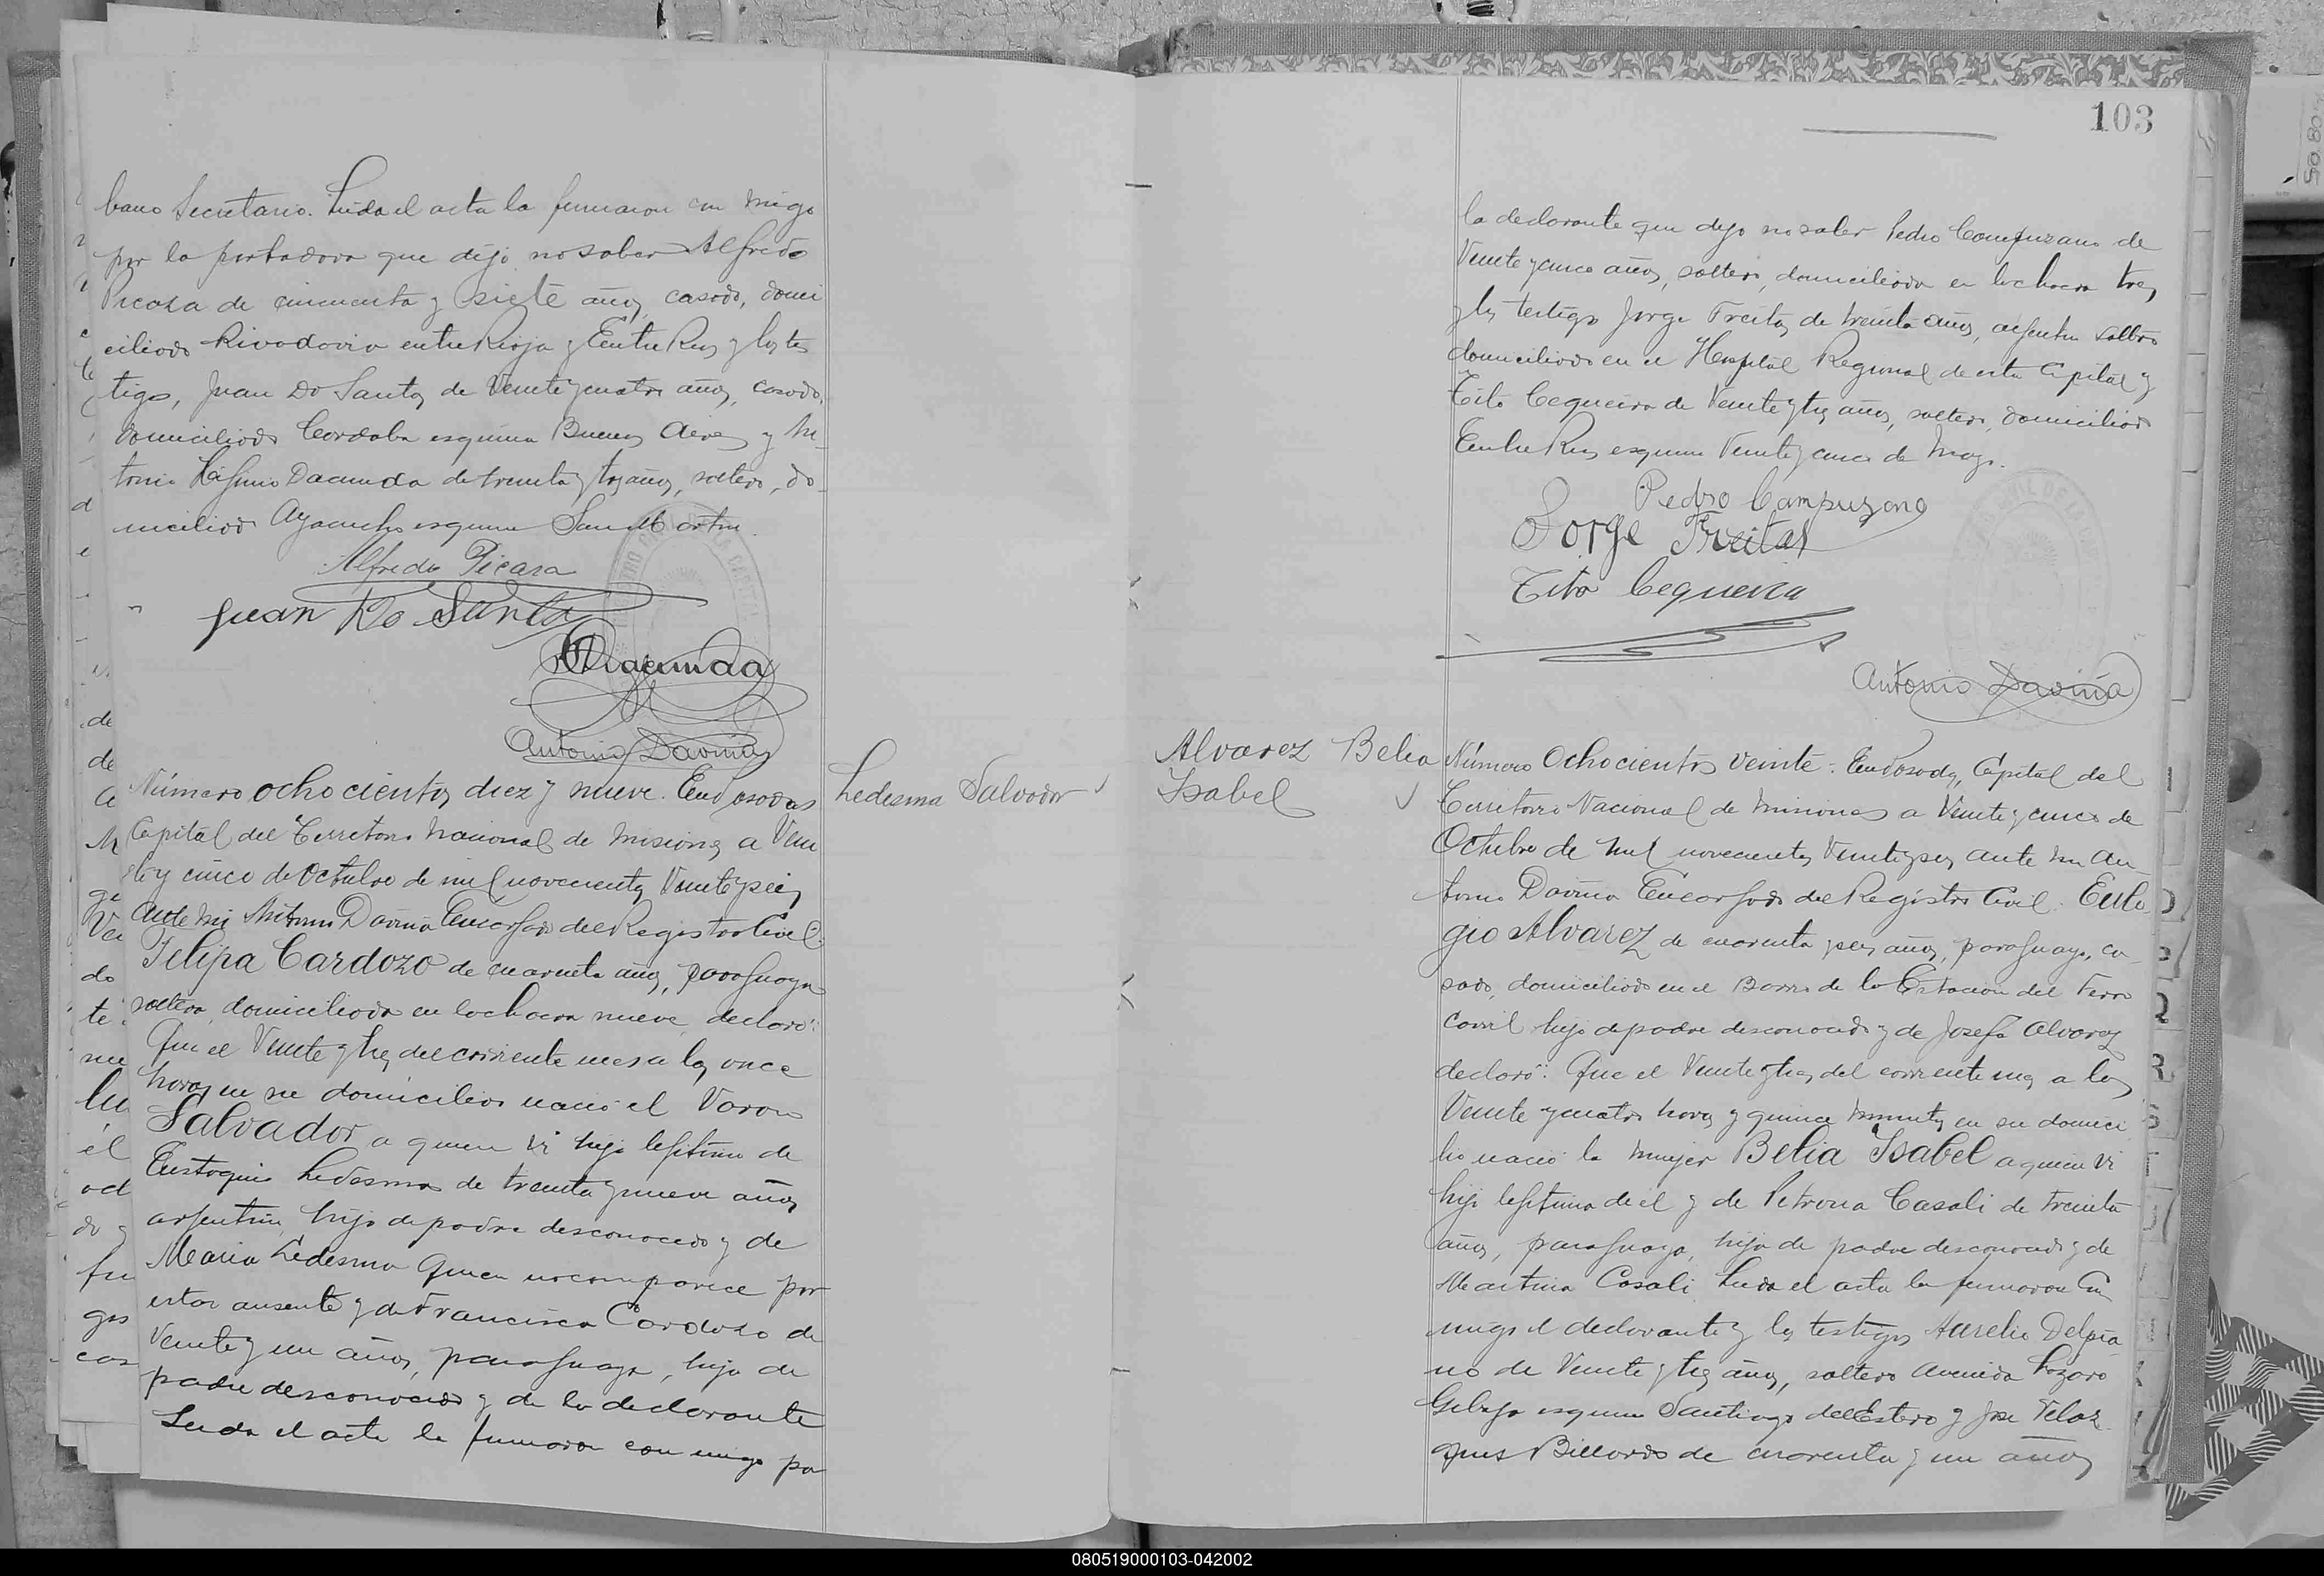 bano Secretario. Leida el acta la firmaron con migo
por la portadora que dijo no saber Alfredo
Picasa de cincuenta y siete años, casado, domi
ciliado Rivadavia entre Rioja y Entre Rios y los tes
tigos, Juan Do Santos de Veinte y cuatro años, casado,
domiciliado Cordoba esquina Buenos Aires y An-
tonio Dacunda de treinta y tres años, soltero, do-
miciliado Ayacucho esquina San Martin.
Alfredo Picasa
Juan Do Santos
Antonio Daviña
Número ochocientos diez y nueve. En Posadas
Capital del Territorio Nacional de Misiones a Vein
te y cinco de Octubre de mil novecientos Veinte y seis
ante mi Antonio Daviña Encargado del Registro Civil:
Felipa Cardozo de cuarenta años, paraguaya
soltera, domiciliada en la chacra nueve, declaró:
Que el Veinte y tres del corriente mes a las once
horas en su domicilio nació el Varon
Salvador a quien vi hijo lejitimo de
Eustaquio Ledesma de treinta y nueve años
arjentino, hijo de padre desconocido y de
Maria Ledesma quien no comparece por
estar ausente y de Francisca Cardozo de
Veinte y un años, paraguaya, hija de
padre desconocido y de la declarante
Leida el acta la firmaron con migo por
Ledesma Salvador
103
la declarante que dijo no saber Pedro Campuzano de
Veinte y cinco años, soltero, domiciliado en la chacra tres
y los testigos Jorge Freitas de treinta años, arjentino soltero
domiciliado en el Hospital Regional de esta Capital y
Tito Cequeira de Veinte y tres años, soltero, domiciliado
Entre Rios esquina Veinte y cinco de Mayo.
Pedro Campuzano
Jorge Freitas
Tito Cequeira
Antonio Daviña
Alvarez Belia
Isabel
Número Ochocientos veinte. En Posadas, Capital del
Territorio Nacional de Misiones a Veinte y cinco de
Octubre de mil novecientos Veinte y seis ante mi An
tonio Daviña Encargado del Registro Civil: Eulo
gio Alvarez de cuarenta y seis años, paraguayo, ca
sado, domiciliado en el Barrio de la Estacion del Ferro
carril hijo de padre desconocido y de Josefa Alvarez
declaró: Que el Veinte y tres del corriente mes a las
Veinte y cuatro horas y quince minutos en su domici
lio nació la mujer Belia Isabel a quien vi
hija lejitima de el y de Petrona Casali de treinta
años, paraguaya, hija de padre desconocido y de
Martina Casali Leida el acta la firmaron con
migo el declarante y los testigos Aurelio Delpia
no de Veinte y tres años, soltero Avenida Lazaro
Gelaya esquina Santiago del Estero y José Velaz
ques Billordo de cuarenta y un años
080519000103-042002